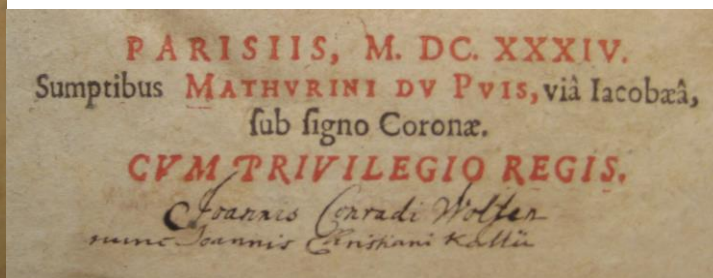 PARISIIS, M. DC. XXXIV.
Sumptibus MATHVRINI DV PVIS, viâ Iacobæâ,
ſub ſigno Coronæ.
CVM PRIVILEGIO REGIS.
Joannis Conradi Wolfen
nunc Joannis Christiani Kallii